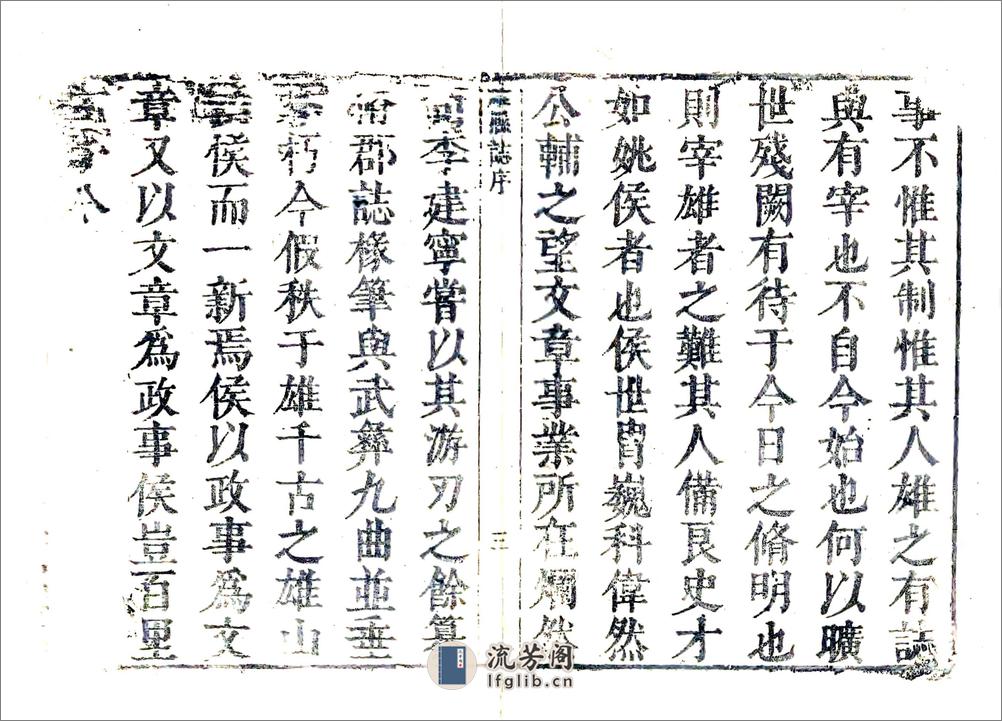 事不惟其制惟其人雄之有誌
與有宰也不自今始也何以曠
世殘闕有待于今日之脩明也
則宰雄者之難其人備良史才
如姚侯者也侯世胄巍科偉然
公輔之望文章事業所在爛然
誌序
三
李建寧嘗以其游刃之餘纂
郡誌椽筆與武彝九曲並垂
朽今假秩于雄千古之雄山
侯而一新焉侯以政事為文
章又以文章為政事侯豈百里
流芳阁
lfglib.cn